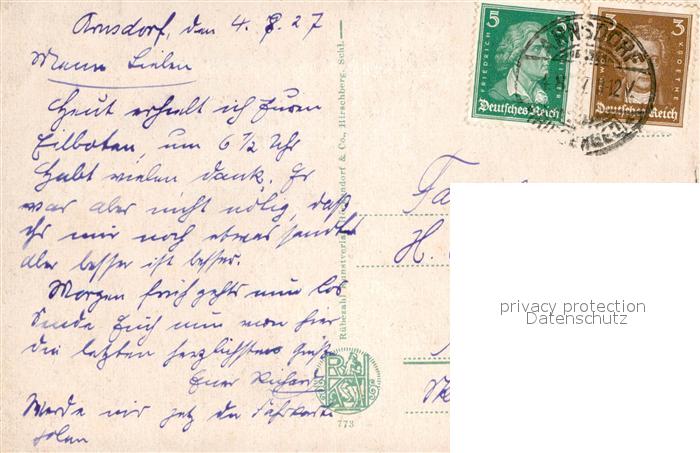 Arnsdorf, den 4. 7. 27
Meine Lieben
Heut erhielt ich Euren
Eilboten, um 6 1/2 Uhr
Habt vielen Dank. Es
war aber nicht nötig, daß
ihr mir noch etwas sandtet
aber besser ist besser.
Morgen früh gehts nun los
Sende Euch nun von hier
die letzten herzlichsten Grüße
Euer Richard
Werde mir jetz die Fahrkarte
holen
Rübezahl Kunstverlag & Co., Hirschberg, Schl.
R K
773
5
FRIEDRICH
Deutsches Reich
3
GOETHE
Deutsches Reich
ARNSDORF
Fa
H.
privacy protection
Datenschutz